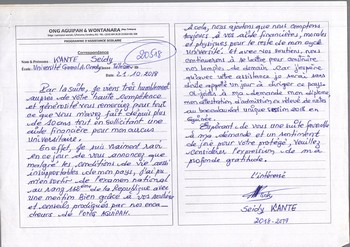 ONG AGUIPAH & WONTANARA
PROGRAMME D'ASSISTANCE SCOLAIRE
Correspondance
20518
WANTE Seidy
Université
Date 21.10.2018
Par la suite, je viens très humblement
auprès de votre haute compétence
et générosité vous remercier pour tout
ce que vous m'avez fait depuis plus
de 10 ans tout en sollicitant une
aide financière pour mon cursus
universitaire.
En effet, je suis vraiment ravi
en ce jour de vous annoncer que
malgré les conditions de vie
insupportables de mon pays, j'ai pu
sortir de l'examen national
au rang de la République avec
une mention Bien grâce à vos soutiens
et conseils prodigués par les
de l'ONG AGUIPAH.
A cela, nous ajoutons que nous comptons
toujours à vos aides financières, morales
et physiques pour le reste de mon cycle
Université. Et avec vos soutiens, nous
continuerons à se battre pour
les leaders de demain. Car j'espère
qu'avec votre assistance je serai sans
doute appelé un jour à diriger ce pays.
Ci-joints à ma demande mon diplôme
mon attestation d'admission et relevé de notes
au baccalauréat unique session 2018 en
Guinée.
Espérant de vous une suite favorable
à ma demande et un sentiment
de joie pour votre protégé, veuillez
considérer l'expression de ma
profonde gratitude.
L'intéressé
Seidy WANTE
2018-2019